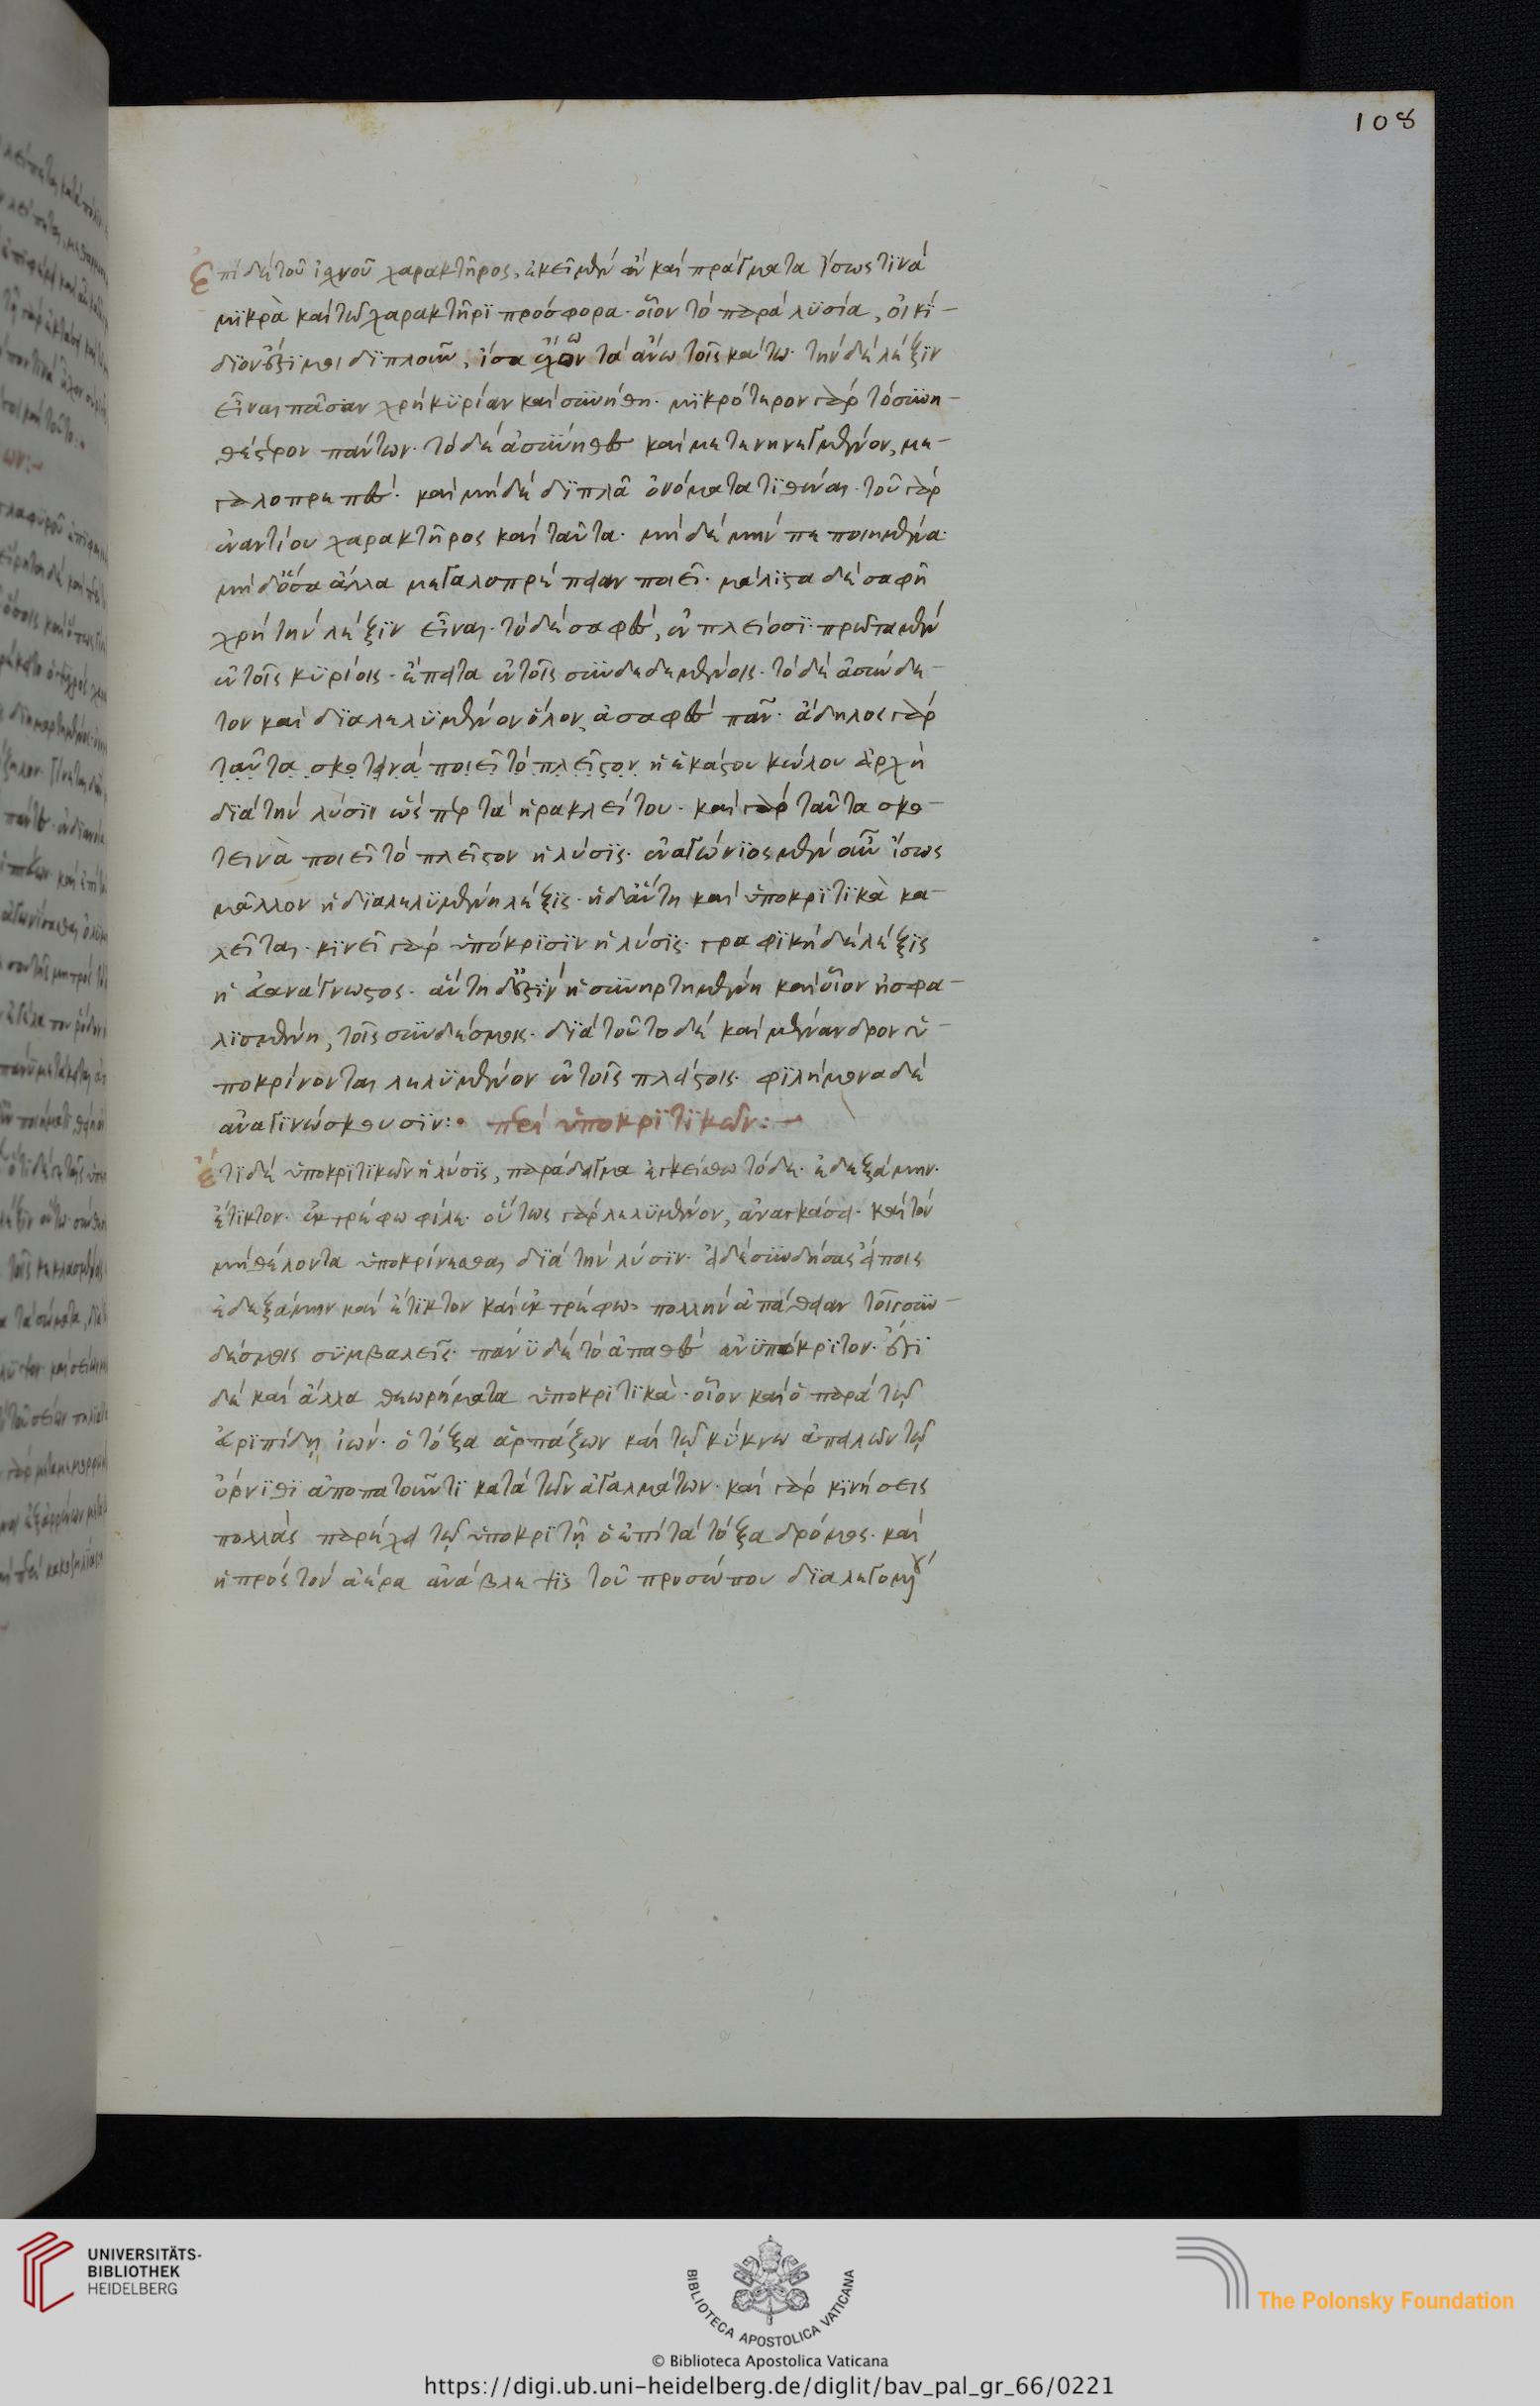 108
Ἐπὶ δὲ τοῦ ἰσχνοῦ χαρακτῆρος, ἔχει μὲν ἂν καὶ πράγματα ἴσως τινὰ
μικρὰ καὶ τῷ χαρακτῆρι πρόσφορα· οἷον τὸ παρὰ λυσία, οἰκί-
διον ἐστί μοι διπλοῦν, ἴσα ἔχον τὰ ἄνω τοῖς κάτω· τὴν δὲ λέξιν
εἶναι πᾶσαν χρὴ κυρίαν καὶ συνήθη· μικρότερον γὰρ τὸ συνη-
θέστερον πάντων· τὸ δὲ ἀσύνηθες καὶ μετενηνεγμένον, με-
γαλοπρεπές· καὶ μηδὲ διπλᾶ ὀνόματα τιθέναι· τοῦ γὰρ
ἐναντίου χαρακτῆρος καὶ ταῦτα· μηδὲ μὴν πεποιημένα·
μηδ' ὅσα ἄλλα μεγαλοπρέπειαν ποιεῖ· μάλιστα δὲ σαφῆ
χρὴ τὴν λέξιν εἶναι· τὸ δὲ σαφές, ἐν πλείοσι· πρῶτα μὲν
ἐν τοῖς κυρίοις· ἔπειτα ἐν τοῖς συνδεδεμένοις· τὸ δὲ ἀσύνδε-
τον καὶ διαλελυμένον ὅλον, ἀσαφὲς πᾶν· ἄδηλος γὰρ
ταῦτα σκοτεινὰ ποιεῖ τὸ πλεῖστον ἡ ἑκάστου κώλου ἀρχὴ
διὰ τὴν λύσιν ὥσπερ τὰ ἡρακλείτου· καὶ γὰρ ταῦτα σκο-
τεινὰ ποιεῖ τὸ πλεῖστον ἡ λύσις· ἐναγώνιος μὲν οὖν ἴσως
μᾶλλον ἡ διαλελυμένη λέξις· ἡ δ' αὐτὴ καὶ ὑποκριτικὰ κα-
λεῖται· κινεῖ γὰρ ὑπόκρισιν ἡ λύσις· γραφικὴ δὲ λέξις
ἡ εὐανάγνωστος· αὕτη δ' ἐστὶν ἡ συνηρτημένη καὶ οἷον ἠσφα-
λισμένη, τοῖς συνδέσμοις· διὰ τοῦτο δὲ καὶ μένανδρον ὑ-
ποκρίνονται λελυμένον ἐν τοῖς πλείστοις· φιλήμονα δὲ
ἀναγινώσκουσιν:· περὶ ὑποκριτικῶν:
Ἔτι δὲ ὑποκριτικῶν ἡ λύσις, παράδειγμα ἐγκείσθω τόδε· ἐδεξάμην·
ἔτικτον· ἐκτρέφω φίλε· οὕτως γὰρ λελυμένον, ἀναγκάσει· καὶ τὸν
μὴ θέλοντα ὑποκρίνεσθαι διὰ τὴν λύσιν· εἰ δὲ συνδήσας εἴποις
ἐδεξάμην καὶ ἔτικτον καὶ ἐκτρέφω· πολλὴν ἀπάθειαν τοῖς συν-
δέσμοις συμβαλεῖς· πάνυ δὲ τὸ ἀπαθὲς ἀνυπόκριτον· ἔστι
δὲ καὶ ἄλλα θεωρήματα ὑποκριτικὰ· οἷον καὶ ὁ παρὰ τῷ
εὐριπίδῃ ἰών· ὁ τόξα ἁρπάζων καὶ τῷ κύκνω ἀπειλῶν τῷ
ὄρνιθι ἀποπατοῦντι κατὰ τῶν ἀγαλμάτων· καὶ γὰρ κινήσεις
πολλὰς παρέχει τῷ ὑποκριτῇ ὁ ἐπὶ τὰ τόξα δρόμος· καὶ
ἡ πρὸς τὸν ἀέρα ἀνάβλεψις τοῦ προσώπου διαλεγομέ
UNIVERSITÄTS-
BIBLIOTHEK
HEIDELBERG
BIBLIOTECA APOSTOLICA VATICANA
© Biblioteca Apostolica Vaticana
The Polonsky Foundation
https://digi.ub.uni-heidelberg.de/diglit/bav_pal_gr_66/0221